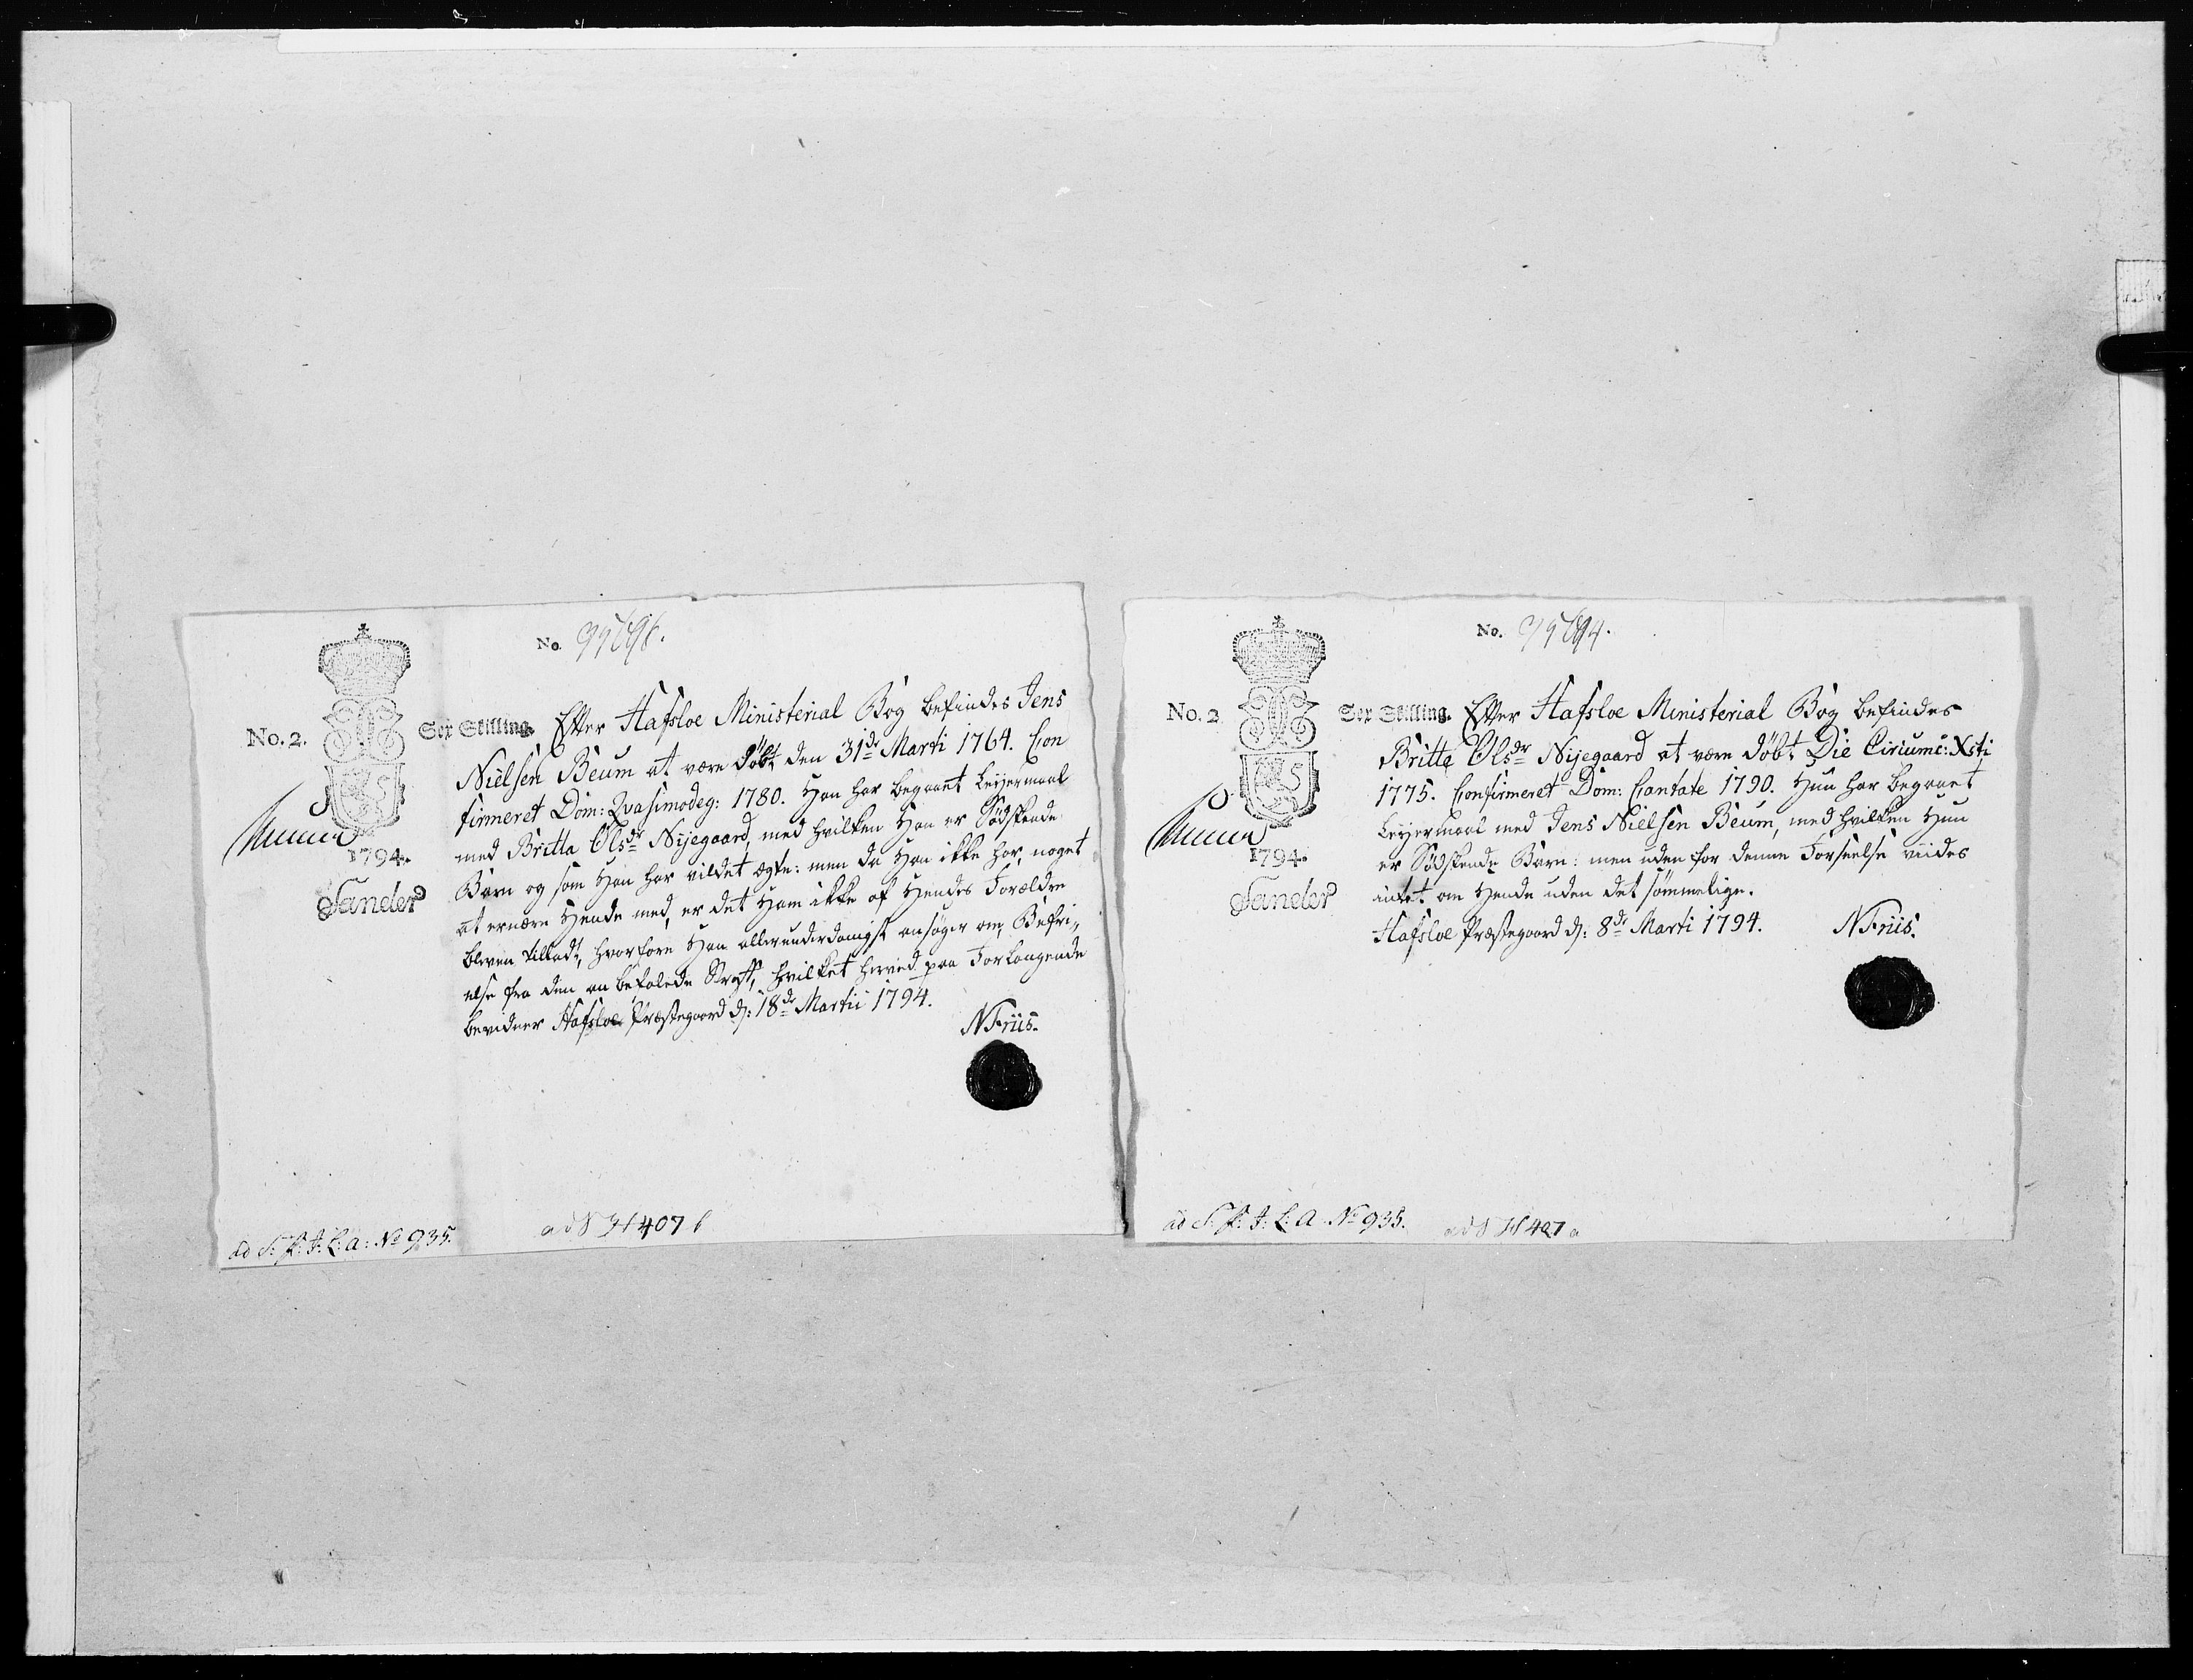 No.
No. 2.
Sex Skilling.
1794.
Sander
Efter Hafsloe Ministerial Bog befindes Jens
Nielsen Beum at være döbt den 31de Marti 1764. Con
firmeret Dom: Qvasimodog: 1780. Han har begaaet Leyermaal
med Britta Olsdr Nijegaard, med hvilken Han er Södskende
Barn og som Han har vildet ægte: men da Han ikke har noget
at ernære Hende med, er det Ham ikke af Hendes Forældre
bleven tilladt, hvorfore Han allerunderdanigst ansöger om, Befri„
else fra den anbefalede Straff, hvilket herved paa Forlangende
bevidner Hafsloe Præstegaard d: 18de Martii 1794.
NFriis.
ad S: K: J: L: A: No 935.
ad S H 407 b
No. 95694.
No. 2
Sex Skilling.
1794.
Sander
Efter Hafsloe Ministerial Bog befindes
Britte Olsdr Nijegaard at være döbt Die Ciriumc: Xsti
1775. Confirmeret Dom: Cantate 1790. Hun har begaaet
Leyermaal med Jens Nielsen Beum, med hvilken Hun
er Södskende Barn: men uden for denne Forseelse viides
intet om Hende uden det sömmelige.
Hafsloe Præstegaard d: 8de Marti 1794.
NFriis.
ad S: K: J: L: A. No 935.
ad S H 407 a